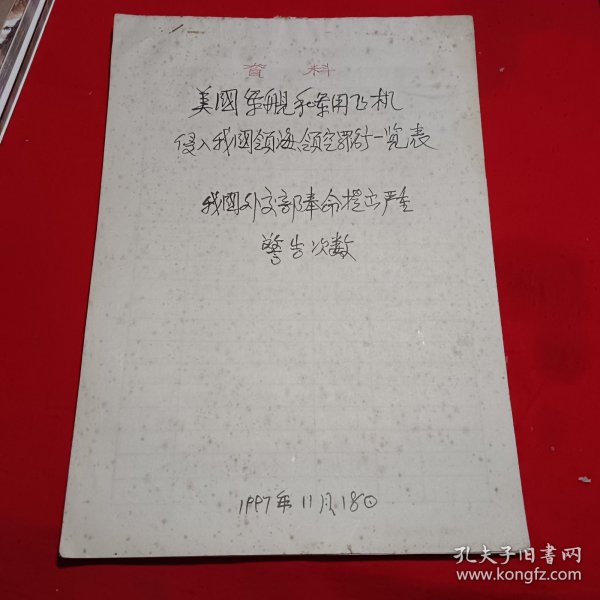 資 料
美國军舰和军用飞机
侵入我國領海、領空罪行一览表
我國外交部奉命提出严重
警告次数
1997年11月18日
孔夫子旧書网
www.kongfz.com